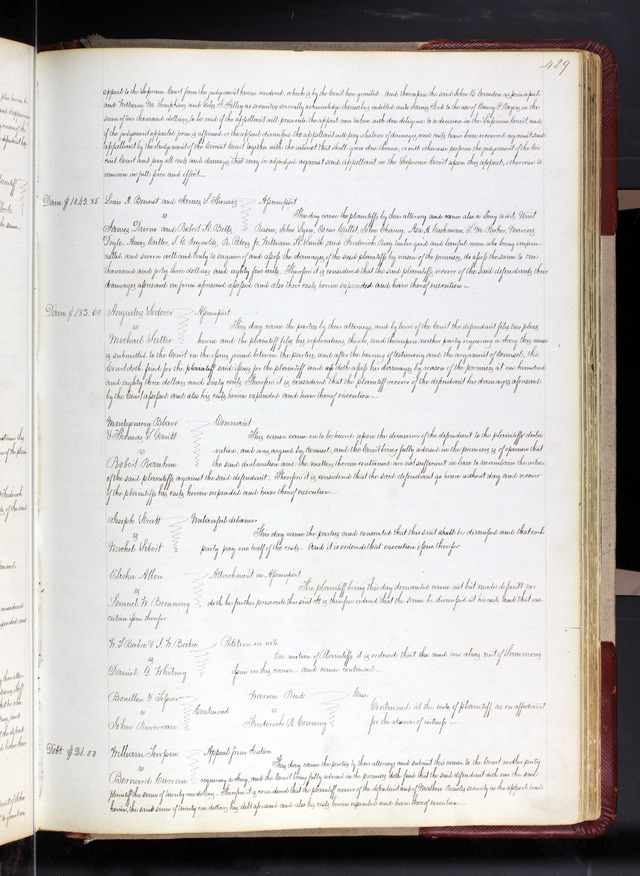 489
appeal to the Supreme Court from the judgement herein rendered, which is by the Court here granted. And thereupon the said John B. as principal
and William M. and Giles F. Filley as securities severally acknowledge themselves indebted unto Henry in the
sum of two thousand dollars, to be void if the appellant will prosecute the appeal now taken with due diligence to a decision in the Supreme Court and
if the judgement appealed from is affirmed or the appeal dismissed the appellant will pay whatever of damages and costs have been recovered against said
appellant by the Judgement of the Circuit Court together with the interest that shall grow due thereon, or will otherwise perform the judgement of the Cir-
cuit Court and pay all costs and damages that may be adjudged against said appellant in the Supreme Court upon this appeal, otherwise to
remain in full force and effect.—
Dam. $1043.85 Louis A. Benoist and James S. Thomas Assumpsit
vs This day came the plaintiffs by their attorney and came also a Jury to wit,
James Dunn and Robert H. Betts John Tyson, Oscar John
Doyle, Amos Cutler, J. C. Reynolds, William H. Smith and Frederick twelve good and lawful men who being empan-
nelled and sworn well and truly to enquire of and assess the damages of the said plaintiffs by reason of the premises, do assess the same to one
thousand and forty three dollars and eighty five cents. Therefore it is considered that the said plaintiffs recover of the said defendants their
damages aforesaid in form aforesaid assessed and also their costs herein expended and have thereof execution.—
Dam. $183.60 Augustus Assumpsit
vs This day came the parties by their attorneys, and by leave of the Court the defendant files two pleas
Michael Sutter herein and the plaintiff files his replications thereto, and thereupon neither party requiring a Jury this cause
is submitted to the Court on the issues joined between the parties, and after the hearing of testimony and the argument of Counsel, the
Court doth find for the plaintiff said issues for the plaintiff and doth assess his damages by reason of the premises at one hundred
and eighty three dollars and sixty cents. Therefore it is considered that the plaintiff recover of the defendant his damages aforesaid
by the Court assessed and also his costs herein expended and have thereof execution.—
Montgomery Blair Covenant
& Thomas T. Gantt This cause came on to be heard upon the demurrer of the defendant to the plaintiffs decla-
vs ration, and was argued by Counsel, and the Court being fully advised in the premises is of opinion that
Robert the said declaration and the matters therein contained are not sufficient in law to maintain the action
of the said plaintiffs against the said defendant.— Therefore it is considered that the said defendant go hence without day and recover
of the plaintiffs his costs herein expended and have thereof execution.—
Joseph Unlawful detainer
vs This day came the parties and consented that this suit shall be dismissed and that each
Michel party pay one half of the costs.— And it is ordered that execution issue therefor
Elisha Allen Attachment in Assumpsit
vs The plaintiff being this day demanded came not but made default nor
Samuel W. Browning doth he further prosecute this suit. It is therefore ordered that the same be dismissed at his costs and that exe-
cution issue therefor
W. S. Beebee & J. W. Beebee Petition on note
vs On motion of Plaintiffs it is ordered that the and an alias writ of Summons
Daniel G. Whitney issue in this cause and cause continued.—
Bouillon & Warren Case
vs Continued Continued at the costs of plaintiff, on an affidavit
John Frederick A. for the absence of witness.—
Debt $21.00 William Turpin Appeal from Justice
vs This day came the parties by their attorneys and submit this cause to the Court neither party
Bernard Curran requiring a Jury, and the Court being fully advised in the premises doth find that the said defendant doth owe the said
plaintiff the sum of twenty one dollars.— Therefore it is considered that the plaintiff recover of the defendant and of security in the appeal bond
herein, the said sum of twenty one dollars his debt aforesaid and also his costs herein expended and have thereof execution.—